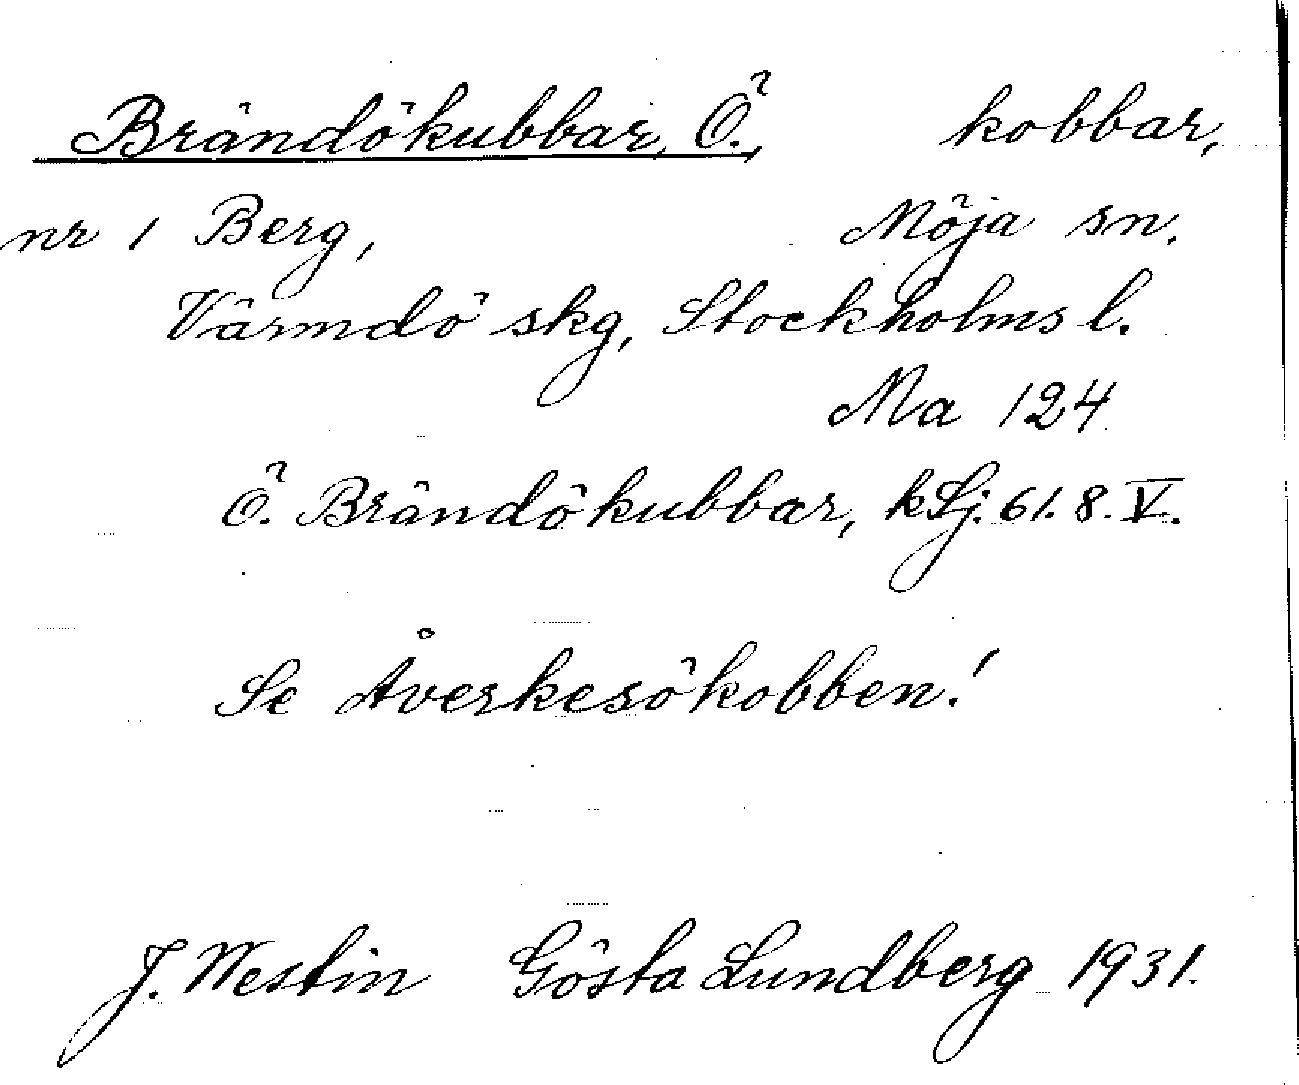 Brändökubbar, Ö., kobbar,
nr 1 Berg, Möja sn.
Värmdö skg, Stockholms l.
Ma 124
Ö. Brändökubbar, kLj. 61. 8. V.
Se Åverkesökobben!
J. Westin Gösta Lundberg 1931.